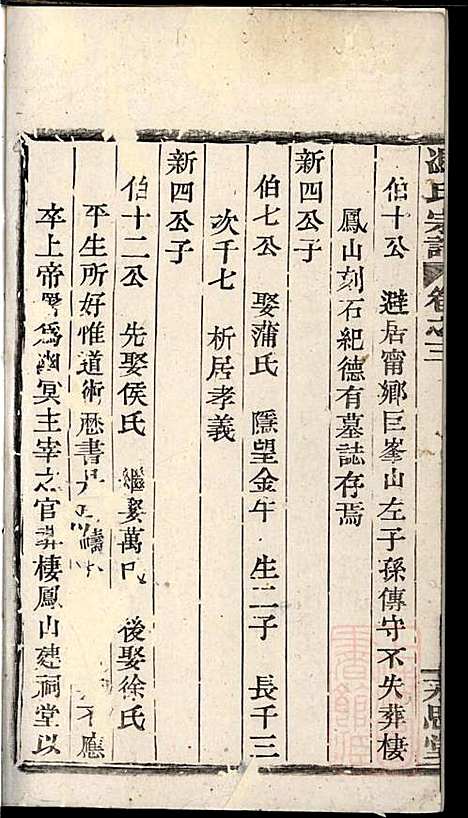 氏宗譜 卷之三
伯十公 避居甯鄉巨峯山左子孫傳守不失葬棲
鳳山刻石紀德有墓誌存焉
新四公子
伯七公 娶蒲氏 隱望金牛 生二子 長千三
次千七 析居孝義
新四公子
伯十二公 先娶侯氏 繼娶萬氏 後娶徐氏
平生所好惟道術歷書 不應
卒上帝署爲幽冥主宰之官葬棲鳳山建祠堂以